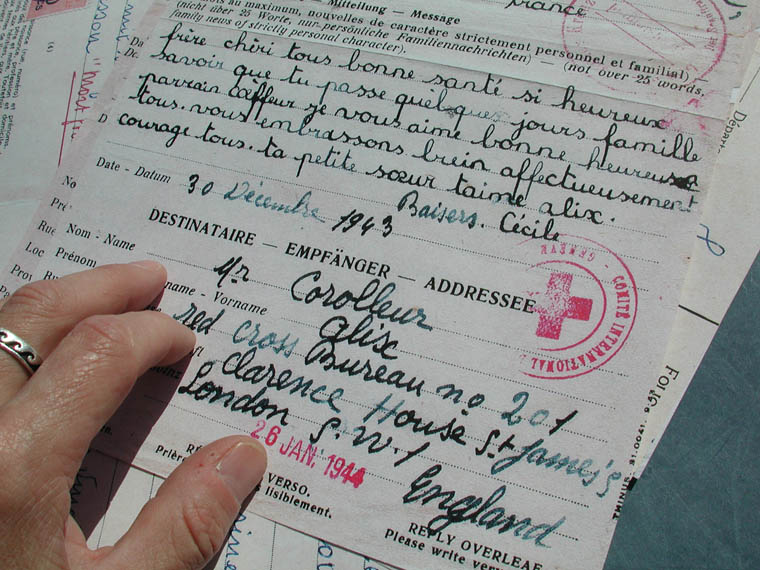 Mitteilung - Message
france
mots au maximum, nouvelles de caractère strictement personnel et familial)
(nicht über 25 Worte, nur persönliche Familiennachrichten) — (not over 25 words,
family news of strictly personal character).
frère chéri tous bonne santé si heureux
savoir que tu passe quelques jours famille
parrain coiffeur je vous aime bonne heureuse
tous. vous embrassons bien affectueusement
courage tous. ta petite sœur t'aime alix.
Baisers. Cécile
Date - Datum 30 Décembre 1943
DESTINATAIRE — EMPFÄNGER — ADDRESSEE
Nom - Name Mr Corolleur
Prénom - Vorname alix
red cross Bureau no 201
Clarence House St James's
London S.W.1
England
26 JAN. 1944
COMITÉ INTERNATIONAL
GENÈVE
VERSO.
lisiblement.
REPLY OVERLEAF
Please write very